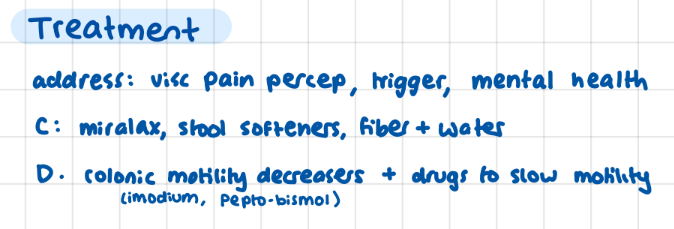 Treatment
address: visc pain percep, trigger, mental health
C: miralax, stool softeners, fiber + water
D. colonic motility decreasers + drugs to slow motility
(imodium, pepto-bismol)